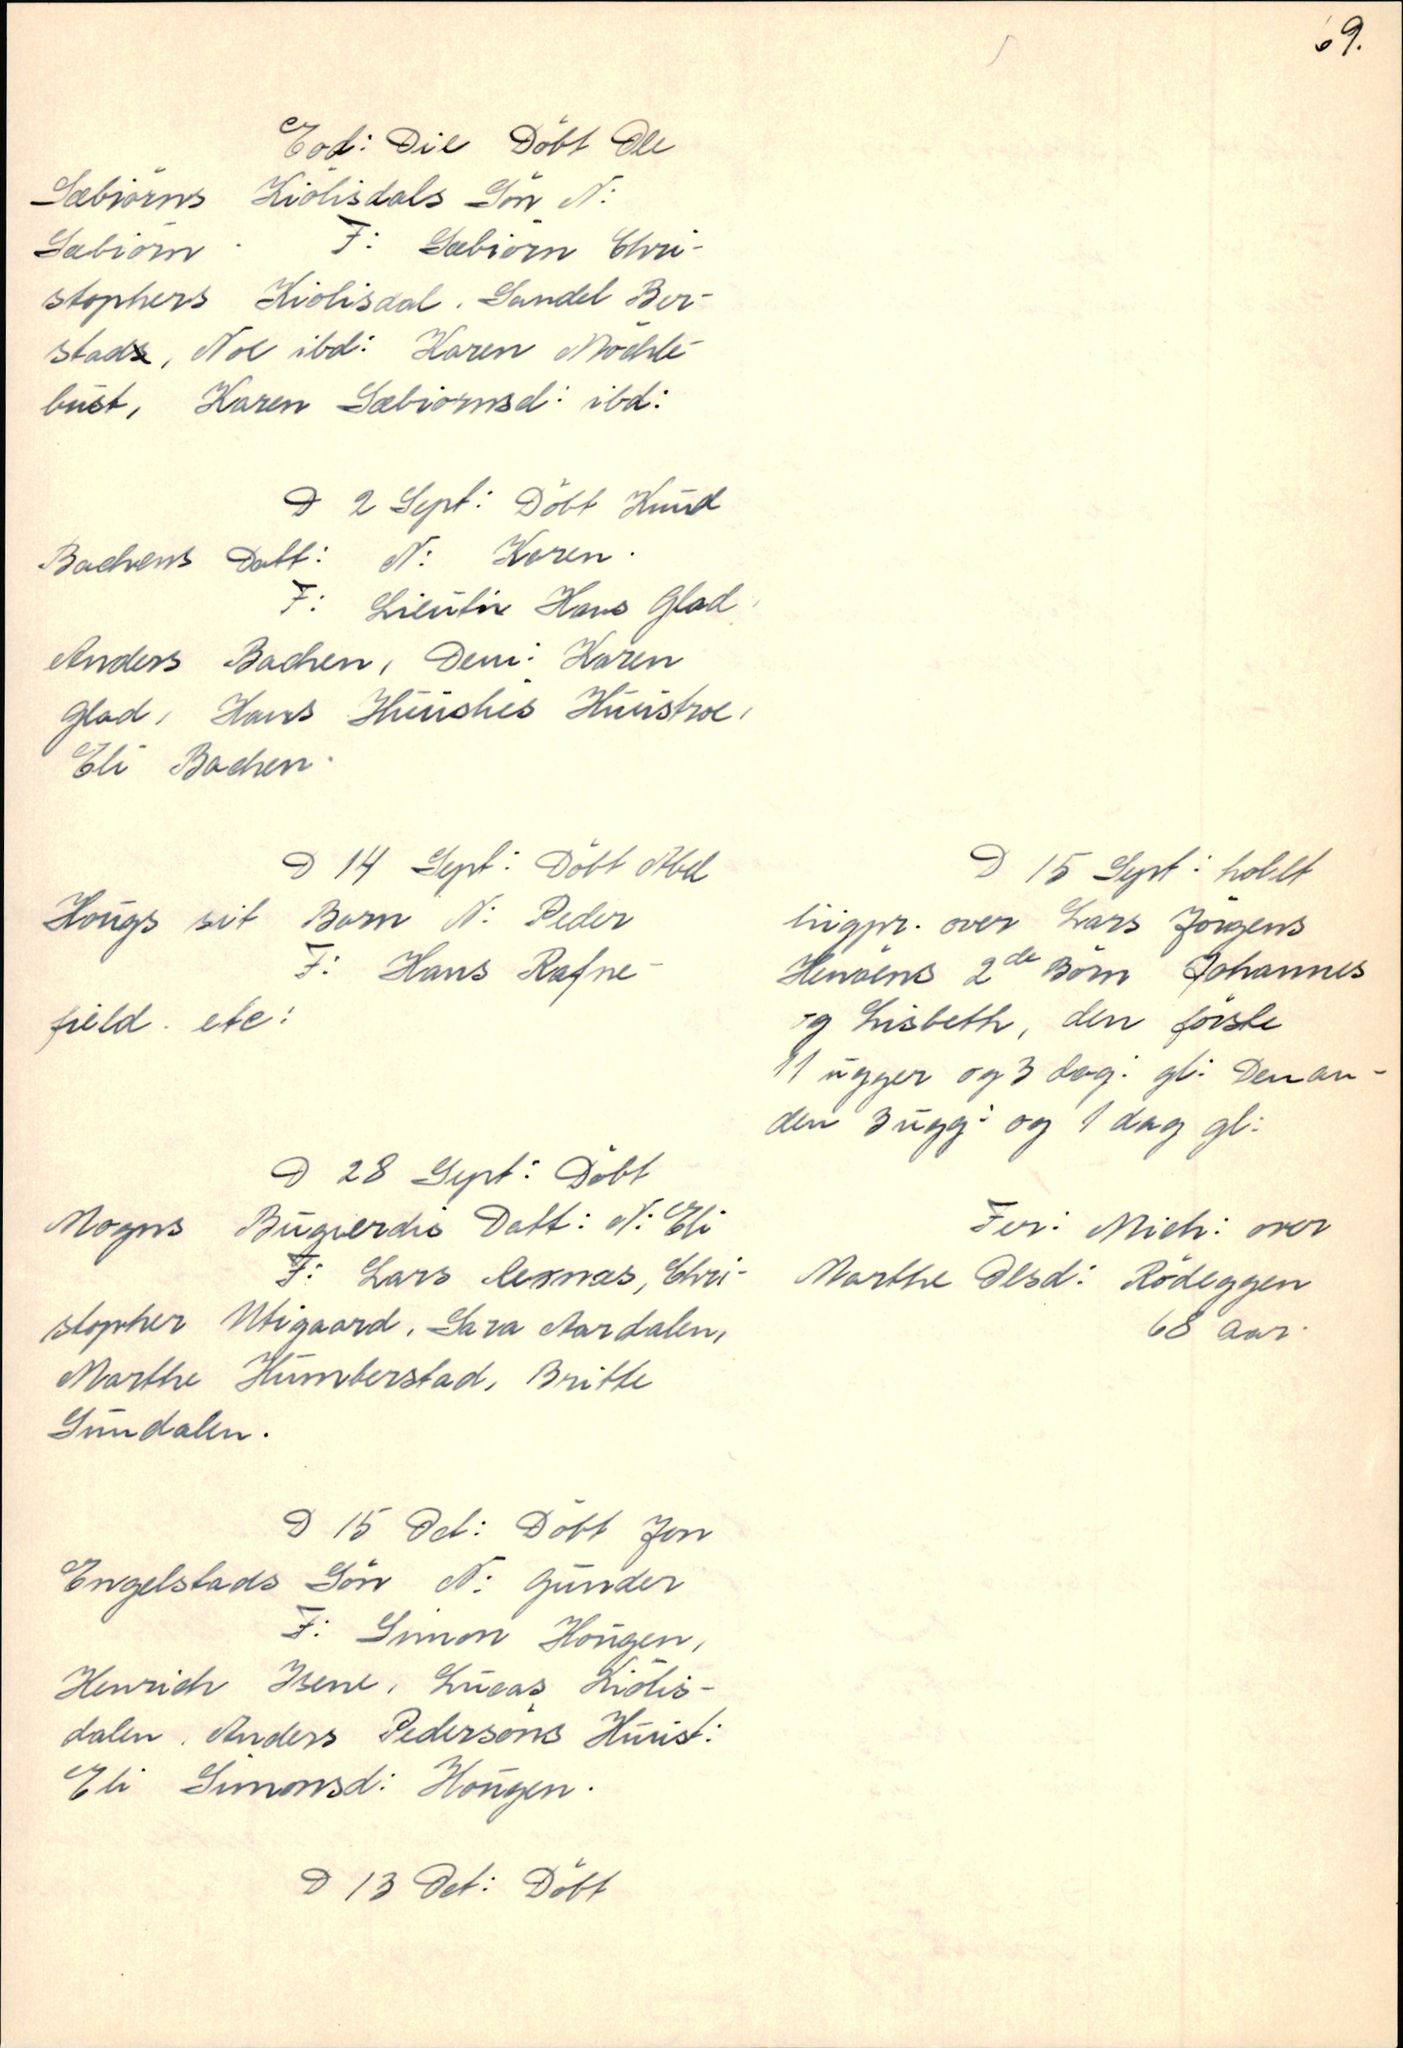 69.
Eod: Die Döbt Ole
Sæbiörns Kiölisdals Sön N:
Sæbiörn. F: Sæbiörn Chri-
stophers Kiölisdal. Sandel Ber-
stad, Noe ibd: Karen Möchle-
bust, Karen Sæbiörnsd: ibd:
D 2 Sept: Döbt Knud
Bachens Datt: N: Karen.
F: Lieutn Hans Glad,
Anders Bachen, Demi: Karen
Glad, Hans Huushes Huustroe,
Eli Bachen.
D 14 Sept: Döbt Abel
Hougs sit Barn N: Peder
F: Hans Rafne-
field. etc:
D 28 Sept: Döbt
Mogns Bugierdis Datt: N: Eli
F: Lars Aexnæs, Chri-
stopher Utigaard, Sara Aardalen,
Marthe Humberstad, Britte
Sundalen.
D 15 Oct: Döbt Jon
Engelstads Sön N: Gunder
F: Simon Hougen,
Henrich Isene, Lucas Kiölis-
dalen. Anders Pedersöns Huust:
Eli Simonsd: Hougen.
D 13 Oct: Döbt
D 15 Sept: holdt
liigpr. over Lars Jörgens
Henöens 2de Börn Johannes
og Lisbeth, den förste
11 ugger og 3 dag: gl: Den an-
den 3 ugg: og 1 dag gl:
Fer: Mich: over
Marthe Olsd: Rödeggen
68 aar.